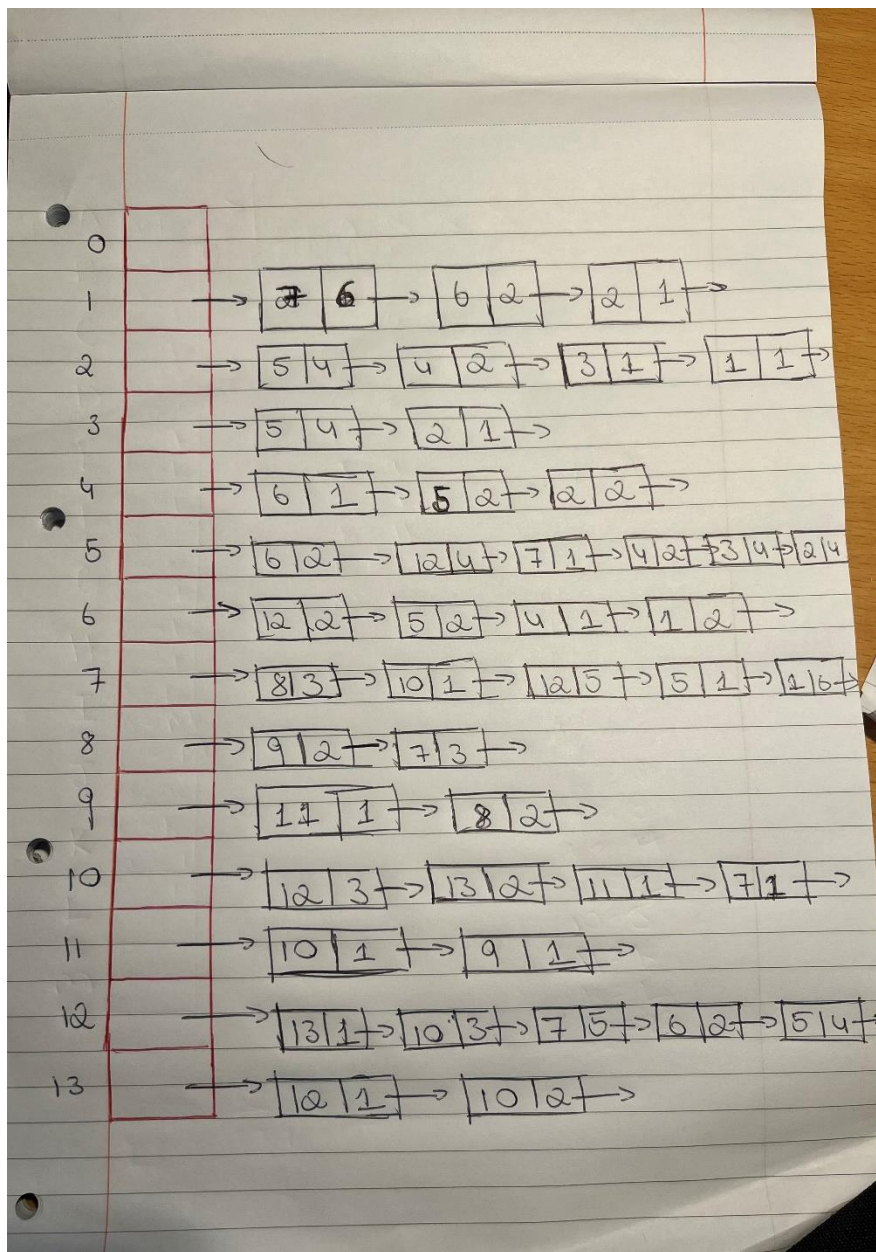 0
1 → 7 6 → 6 2 → 2 1 →
2 → 5 4 → 4 2 → 3 1 → 1 1 →
3 → 5 4 → 2 1 →
4 → 6 1 → 5 2 → 2 2 →
5 → 6 2 → 12 4 → 7 1 → 4 2 → 3 4 → 2 4
6 → 12 2 → 5 2 → 4 1 → 1 2 →
7 → 8 3 → 10 1 → 12 5 → 5 1 → 1 6 →
8 → 9 2 → 7 3 →
9 → 11 1 → 8 2 →
10 → 12 3 → 13 2 → 11 1 → 7 1 →
11 → 10 1 → 9 1 →
12 → 13 1 → 10 3 → 7 5 → 6 2 → 5 4 →
13 → 12 1 → 10 2 →